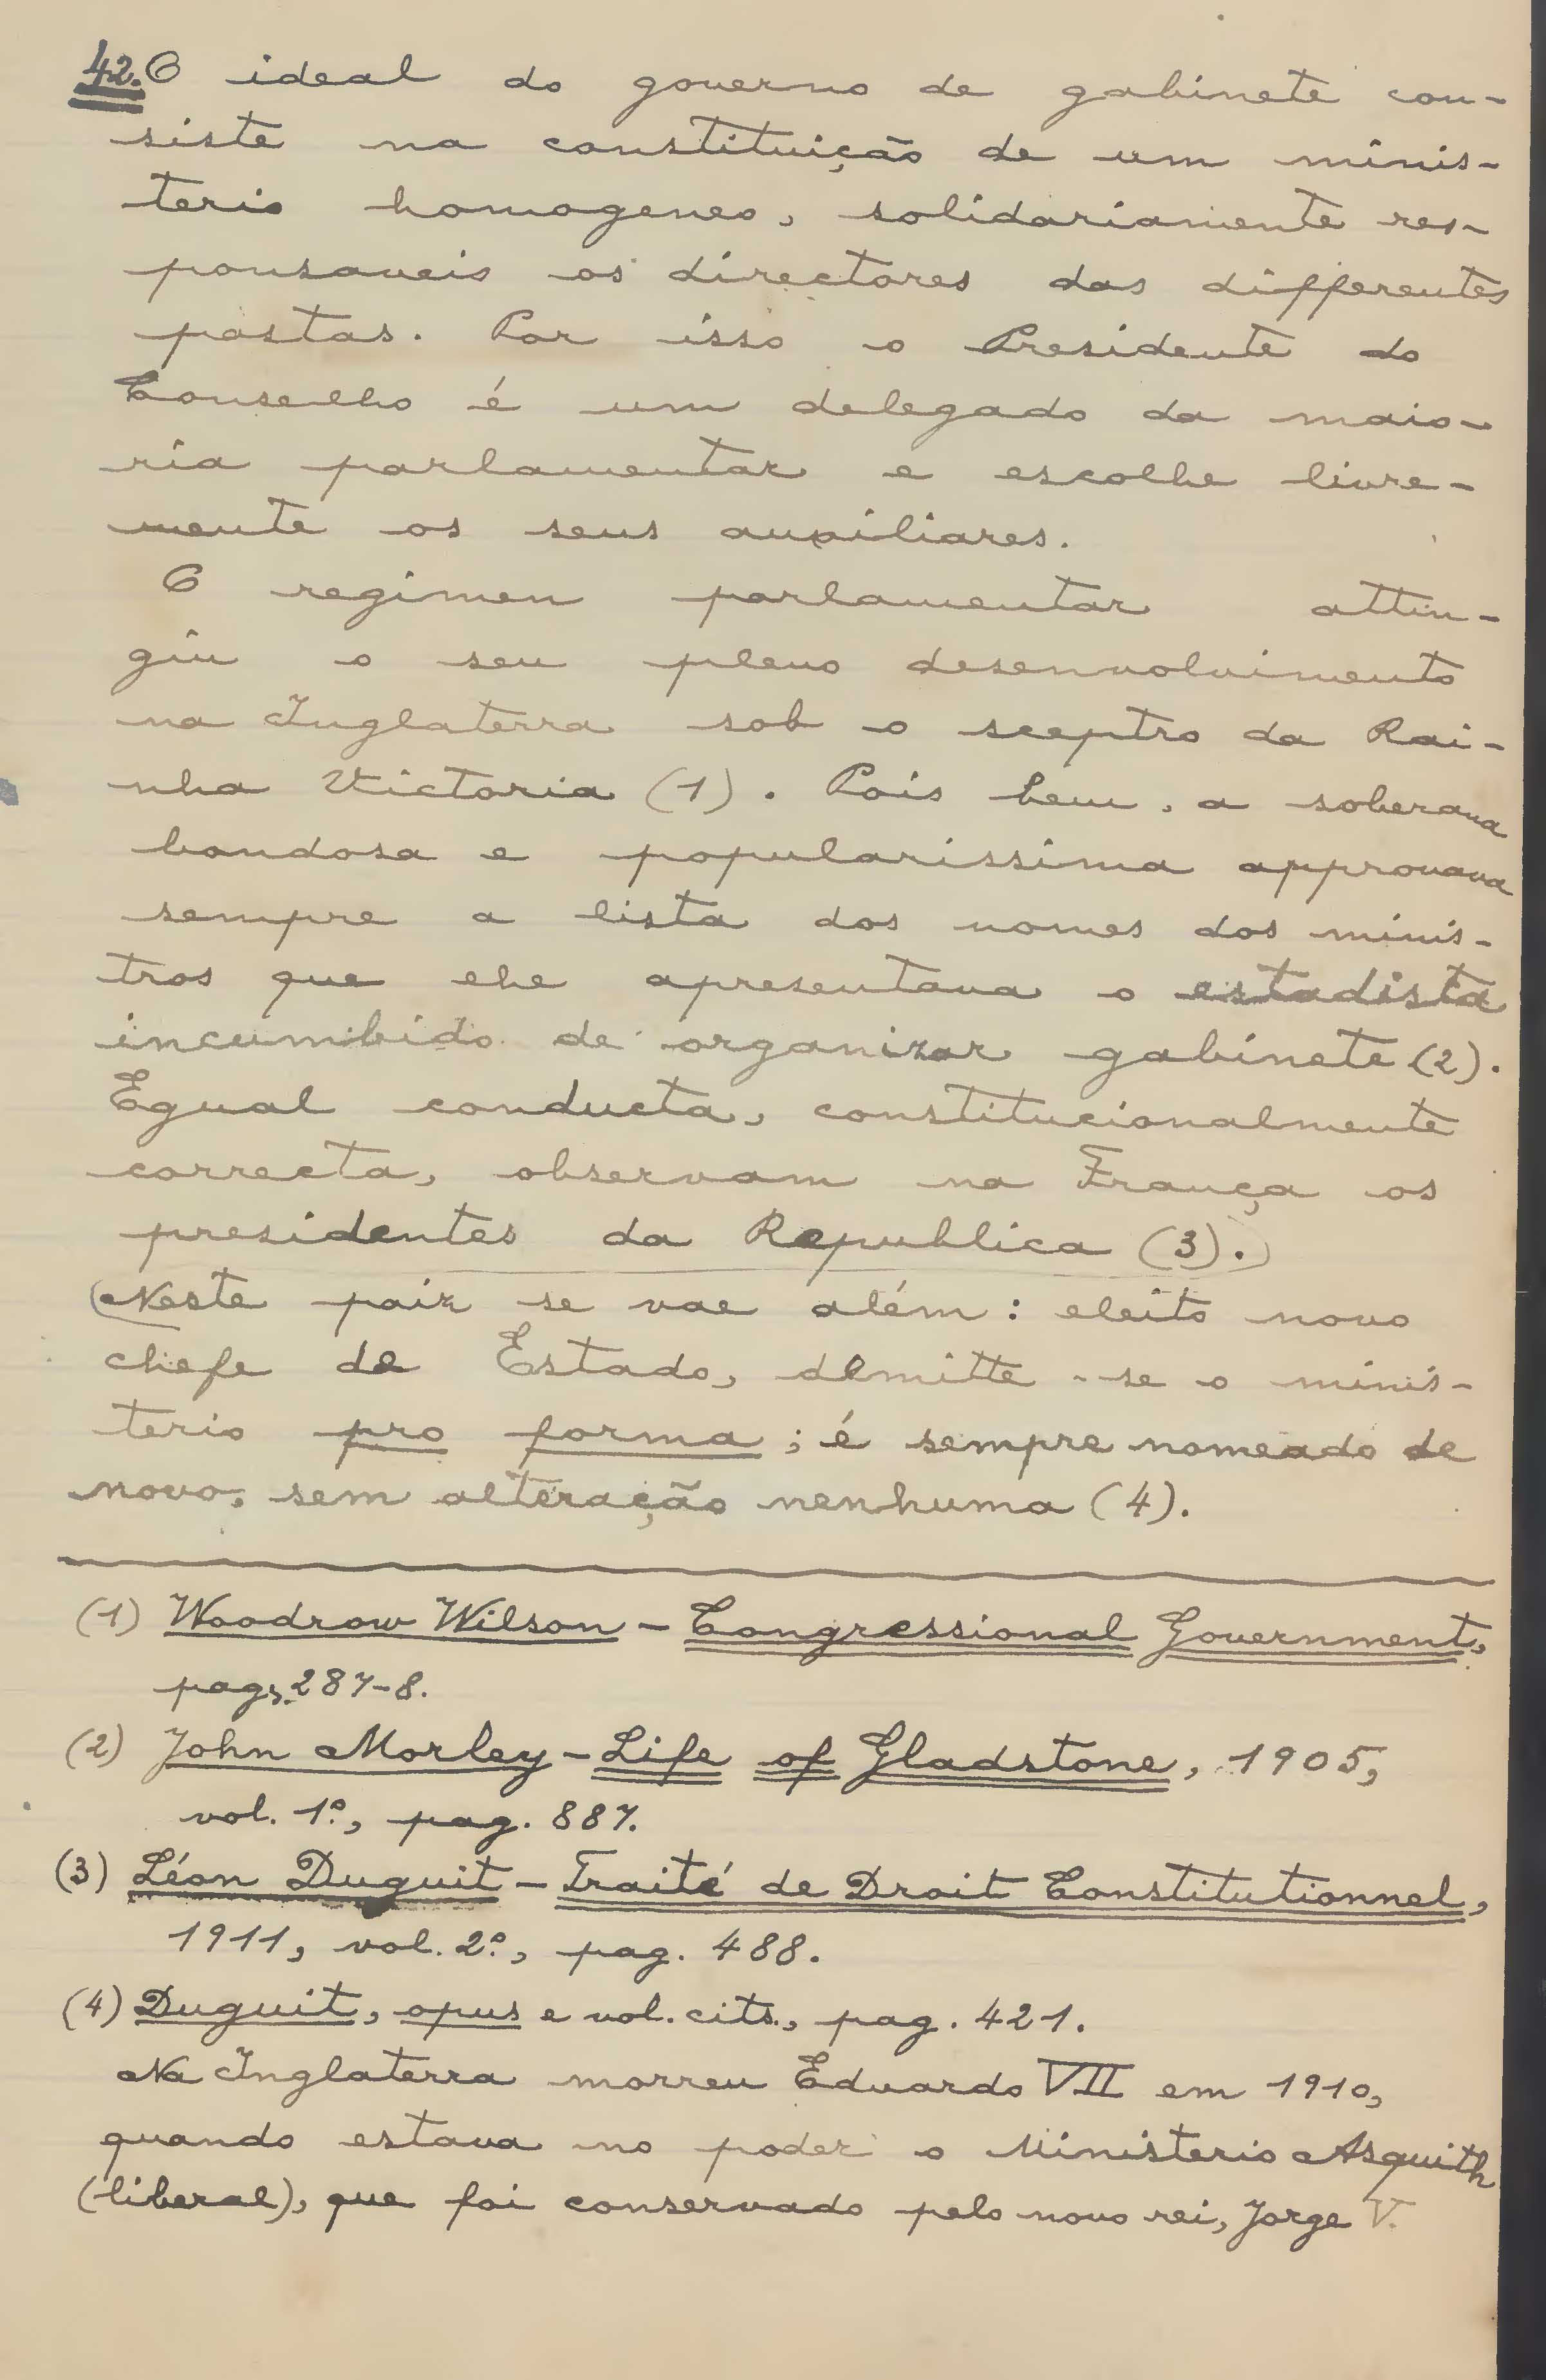 42. O ideal do governo de gabinete con-
siste na constituição de um minis-
terio homogeneo, solidariamente res-
ponsaveis os directores das differentes
pastas. Por isso o Presidente do
Conselho é um delegado da maio-
ria parlamentar e escolhe livre-
mente os seus auxiliares.
O regimen parlamentar attin-
giu o seu pleno desenvolvimento
na Inglaterra sob o sceptro da Rai-
nha Victoria (1). Pois bem, a soberana
bondosa e popularissima approvava
sempre a lista dos nomes dos minis-
tros que lhe apresentava o estadista
incumbido de organizar gabinete (2).
Egual conducta, constitucionalmente
correcta, observam na França os
presidentes da Republica (3).
Neste paiz se vae além: eleito novo
chefe de Estado, demitte-se o minis-
terio pro forma; é sempre nomeado de
novo, sem alteração nenhuma (4).
(1) Woodrow Wilson - Congressional Government,
pags. 287-8.
(2) John Morley - Life of Gladstone, 1905,
vol. 1º, pag. 887.
(3) Léon Duguit - Traité de Droit Constitutionnel,
1911, vol. 2º, pag. 488.
(4) Duguit, opus e vol. cits., pag. 421.
Na Inglaterra morreu Eduardo VII em 1910,
quando estava no poder o Ministerio Asquith
(liberal), que foi conservado pelo novo rei, Jorge V.